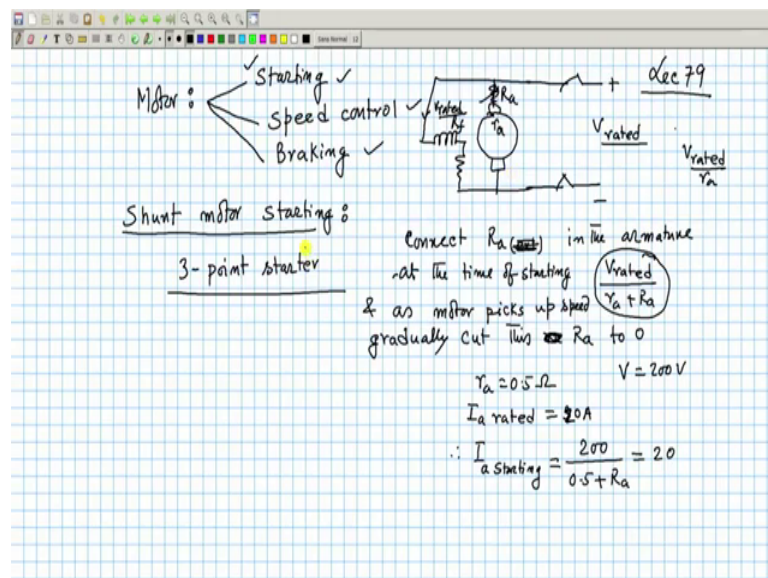 Sans Normal 12
Lec 79
Motor :
Starting
Speed control
Braking
+
Ra
Vrated
Rf
ra
Vrated
Vrated
ra
−
Shunt motor starting :
3-point starter
Connect Ra in the armature
at the time of starting
Vrated
ra + Ra
& as motor picks up speed
gradually cut this Ra to 0
ra = 0.5 Ω
V = 200 V
Ia rated = 20A
∴ Ia starting = 200 / 0.5 + Ra = 20